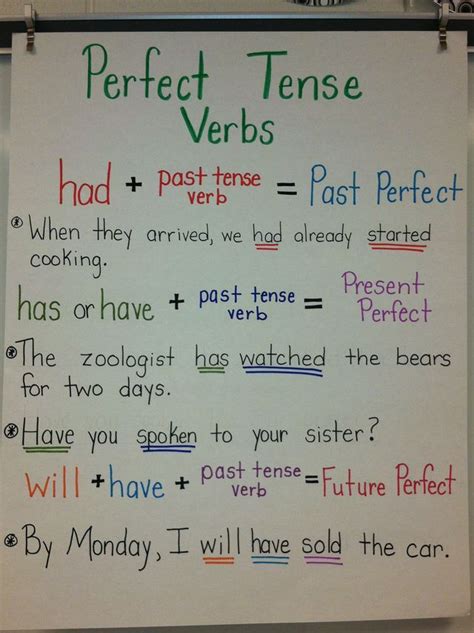 Perfect Tense
Verbs
had + past tense verb = Past Perfect
When they arrived, we had already started
cooking.
has or have + past tense verb = Present Perfect
The zoologist has watched the bears
for two days.
Have you spoken to your sister?
will + have + past tense verb = Future Perfect
By Monday, I will have sold the car.